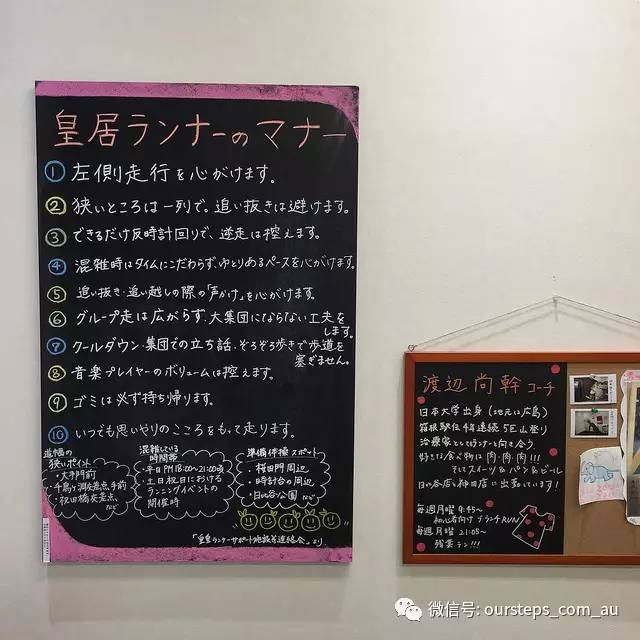 皇居ランナーのマナー
① 左側走行を心がけます。
② 狭いところは一列で。追い抜きは避けます。
③ できるだけ反時計回りで、逆走は控えます。
④ 混雑時はタイムにこだわらず、ゆとりあるペースを心がけます。
⑤ 追い抜き・追い越しの際の「声かけ」を心がけます。
⑥ グループ走は広がらず、大集団にならない工夫を
します。
⑦ クールダウン・集団での立ち話・そろそろ歩きで歩道を
塞ぎません。
⑧ 音楽プレイヤーのボリュームは控えます。
⑨ ゴミは必ず持ち帰ります。
⑩ いつでも思いやりのこころをもって走ります。
道幅の
狭いポイント
・大手門前
・千鳥ヶ淵交差点手前
・祝田橋交差点
など
混雑している
時間帯
・平日PM18:00~21:00頃
・土日祝日における
ランニングイベントの
開催時
準備体操スポット
・桜田門周辺
・時計台の周辺
・日比谷公園 など
「皇居ランナーサポート施設等連絡会」より
渡辺 尚幹 コーチ
日本大学出身(地元は広島)
箱根駅伝4年連続5区山登り
治療家としてランナーと向き合う
好きな食べ物は肉・肉・肉!!!
そしてスイーツ&パン&ビール
日比谷店と神田店に出勤しています!
毎週月曜 9:45~
初心者向けブランチRUN
毎週月曜 21:05~
残業ラン!!!
微信号: oursteps_com_au